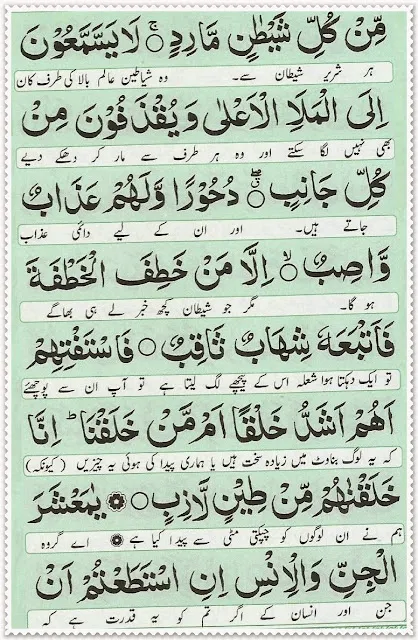 مِّنْ كُلِّ شَيْطٰنٍ مَّارِدٍ ۚ لَا يَسَّمَّعُوْنَ
ہر شریر شیطان سے۔ وہ شیاطین عالم بالا کی طرف کان
اِلَى الْمَلَاِ الْاَعْلٰى وَ يُقْذَفُوْنَ مِنْ
بھی نہیں لگا سکتے اور وہ ہر طرف سے مار کر دھکے دیے
كُلِّ جَانِبٍ ۖ دُحُوْرًا وَّلَهُمْ عَذَابٌ
جاتے ہیں۔ اور ان کے لیے دائمی عذاب
وَّاصِبٌ ۙ اِلَّا مَنْ خَطِفَ الْخَطْفَةَ
ہو گا۔ مگر جو شیطان کچھ خبر لے ہی بھاگے
فَاَتْبَعَهٗ شِهَابٌ ثَاقِبٌ ۝ فَاسْتَفْتِهِمْ
تو ایک دہکتا ہوا شعلہ اس کے پیچھے لگ لیتا ہے تو آپ ان سے پوچھئے
اَهُمْ اَشَدُّ خَلْقًا اَمْ مَّنْ خَلَقْنَا ؕ اِنَّا
کہ یہ لوگ بناوٹ میں زیادہ سخت ہیں یا ہماری پیدا کی ہوئی یہ چیزیں (کیونکہ)
خَلَقْنٰهُمْ مِّنْ طِيْنٍ لَّازِبٍ ۝ يٰمَعْشَرَ
ہم نے ان لوگوں کو چپکتی مٹی سے پیدا کیا ہے اے گروہ
الْجِنِّ وَالْاِنْسِ اِنِ اسْتَطَعْتُمْ اَنْ
جن اور انسان کے اگر تم کو یہ قدرت ہے کہ